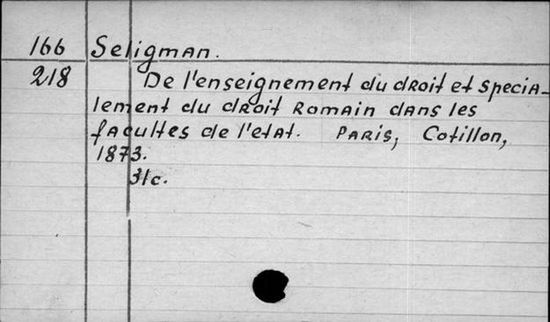 166 Seligman.
218 De l'enseignement du droit et specia-
lement du droit Romain dans les
facultes de l'etat. Paris, Cotillon,
1873.
31c.